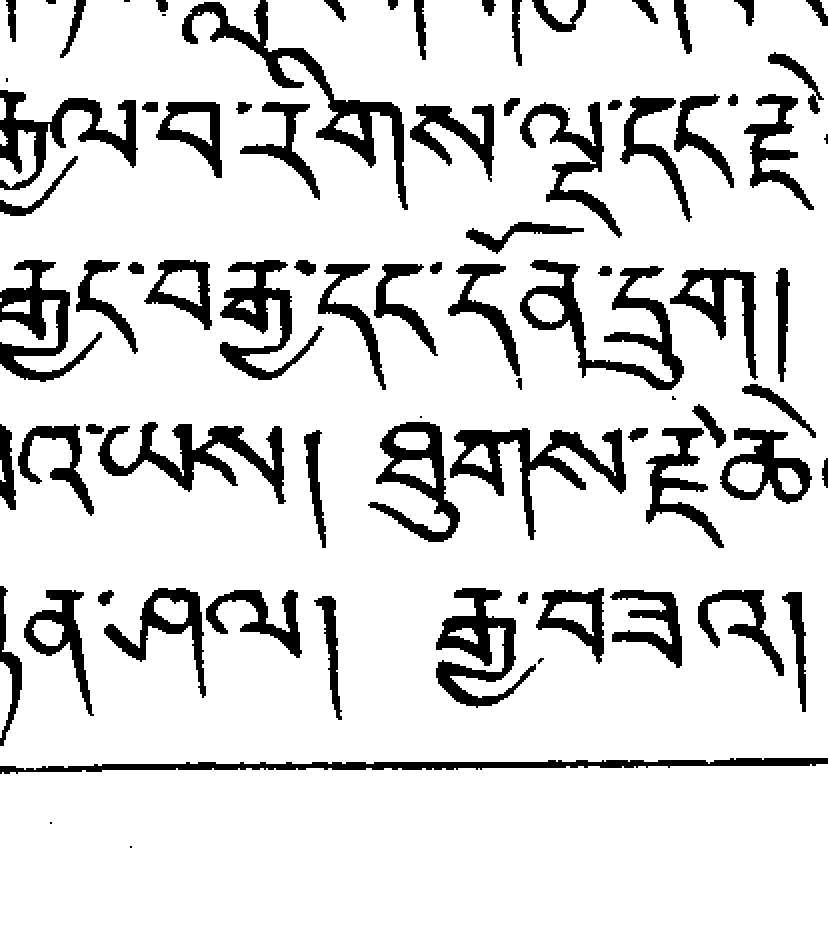 རྒྱལ་བ་རིགས་ལྔ་དང་རྗེ་
རྒྱང་བརྒྱ་དང་དོན་དྲུག།
འ་ཡས། ཐུགས་རྗེ་ཆེ་
ན་ཤལ། རྒྱ་བཟའ།